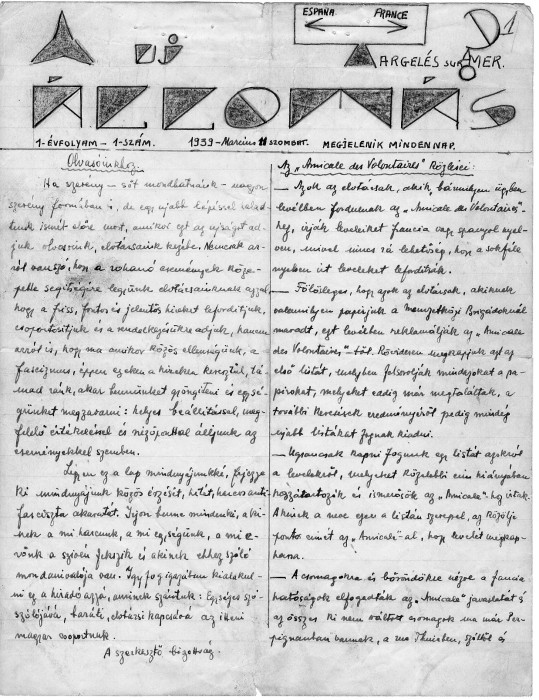 ESPAÑA FRANCE
1
A ÚJ
ARGELÉS SUR MER.
ÁLLOMÁS
1-ÉVFOLYAM - 1-SZÁM. 1939-MÁRCIUS 11 SZOMBAT. MEGJELENIK MINDEN NAP.
Olvasóinkhoz.
Ha szerény – sőt mondhatnánk – nagyon
szerény formában is, de egy újabb lépéssel
ismét előre most, amikor ezt az újságot ad-
juk olvasóink, elvtársaink kezébe. Nemcsak ar-
ról van szó, hogy a rohanó események köze-
pette segítségére legyünk elvtársainknak azzal,
hogy a friss, fontos és jelentős híreket lefordítjuk,
csoportosítjuk és a rendelkezésükre adjuk, hanem
arról is, hogy ma amikor közös ellenségünk, a
fascizmus, éppen ezeken a híreken keresztül, tá-
mad ránk, akar bennünket gyöngíteni és egysé-
günket megzavarni: helyes beállítással, meg-
felelő értékeléssel és nézőponttal álljunk az
eseményekkel szemben.
Legyen ez a lap mindnyájunké, fejezze
ki mindnyájunk közös érzését, hitét, harcos anti-
fasciszta akaratát. Írjon benne mindenki, aki-
nek a mi harcunk, a mi egységünk, a mi
a szívén fekszik és akinek ehhez szóló
mondanivalója van. Így fog igazában kialakul-
ni ez a híradó azzá, aminek szántuk: Egységes szó-
szólójává, baráti, elvtársi kapcsává az itteni
magyar csoportnak.
A szerkesztő bizottság.
Az "Amicale des Volontaires" közlései:
— Azok az elvtársak, akik bármilyen ügyben
levélben fordulnak az "Amicale des Volontaires"-
hez, írják leveleiket francia vagy spanyol nyel-
ven, mivel nincs rá lehetőség, hogy a sokféle
nyelven írt leveleket lefordítsák.
— Fölösleges, hogy azok az elvtársak, akiknek
valamilyen papírjuk a Nemzetközi Brigádoknál
maradt, ezt levélben reklamálják az "Amicale
des Volontaires"-től. Rövidesen megkapjuk azt az
első listát, melyben felsorolják mindazokat a pa-
pírokat, melyeket eddig már megtaláltak, a
további keresések eredményéről pedig mindig
újabb listákat fognak kiadni.
— Ugyancsak kapni fogunk egy listát azokról
a levelekről, melyeket közelebbi cím hiányában
hozzátartozók és ismerősök az "Amicale"-hoz írtak.
Akinek a neve ezen a listán szerepel, az közölje
pontos címét az "Amicale"-al, hogy levelét megkap-
hassa.
— A csomagokra és bőröndökre nézve a francia
hatóságok elfogadták az "Amicale" javaslatát s
az összes ki nem váltott csomagok ma már Per-
pignanban vannak, a